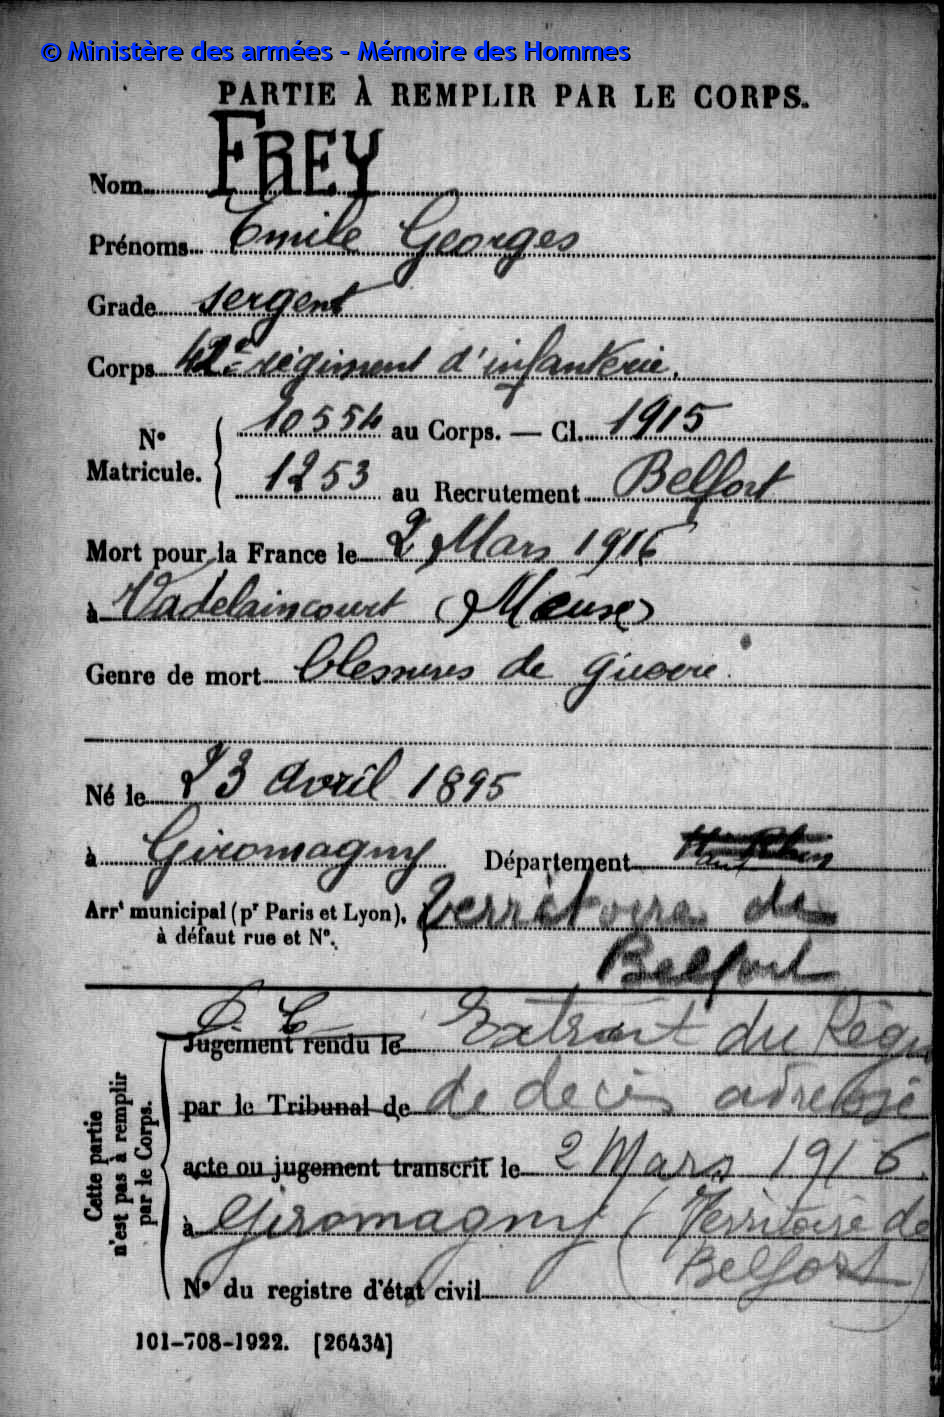 © Ministère des armées - Mémoire des Hommes
PARTIE À REMPLIR PAR LE CORPS.
Nom FREY
Prénoms Emile Georges
Grade sergent
Corps 42e régiment d'infanterie.
N° Matricule. 10554 au Corps. — Cl. 1915
1253 au Recrutement Belfort
Mort pour la France le 2 Mars 1916
à Vadelaincourt (Meuse)
Genre de mort blessures de guerre
Né le 23 avril 1895
à Giromagny Département Haut Rhin
Arrt municipal (pr Paris et Lyon), à défaut rue et N°. Territoire de
Belfort
Jugement rendu le Extrait du
par le Tribunal de de décès adressé
acte ou jugement transcrit le 2 Mars 1916
à Giromagny (Territoire de
Belfort)
N° du registre d'état civil
Cette partie n'est pas à remplir par le Corps.
101-708-1922. [26434]